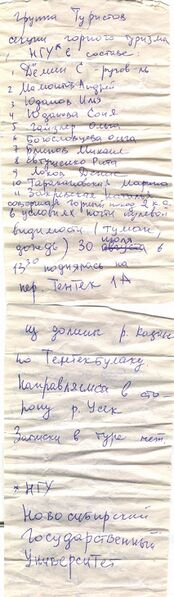 Группа Туристов
секции горного туризма
НГУ* в составе
1 Дёмин С руков-ль
2 Андрей
3 Юданов Илья
4 Юданова Соня
5 Гайдлер Ольга
6 Богословцева Ольга
7 Михаил
8 Рита
9 Денис
10 Марина
11
совершая горный поход 2 к.с
в условиях почти нулевой
видимости (туман,
дождь) 30 июля в
13 30 поднялась на
пер Тентек 1А
из долины р.
по Тентекбулаку.
Направляемся в сто-
рону р. Усек
Записки в туре нет
* НГУ
Новосибирский
Государственный
Университет